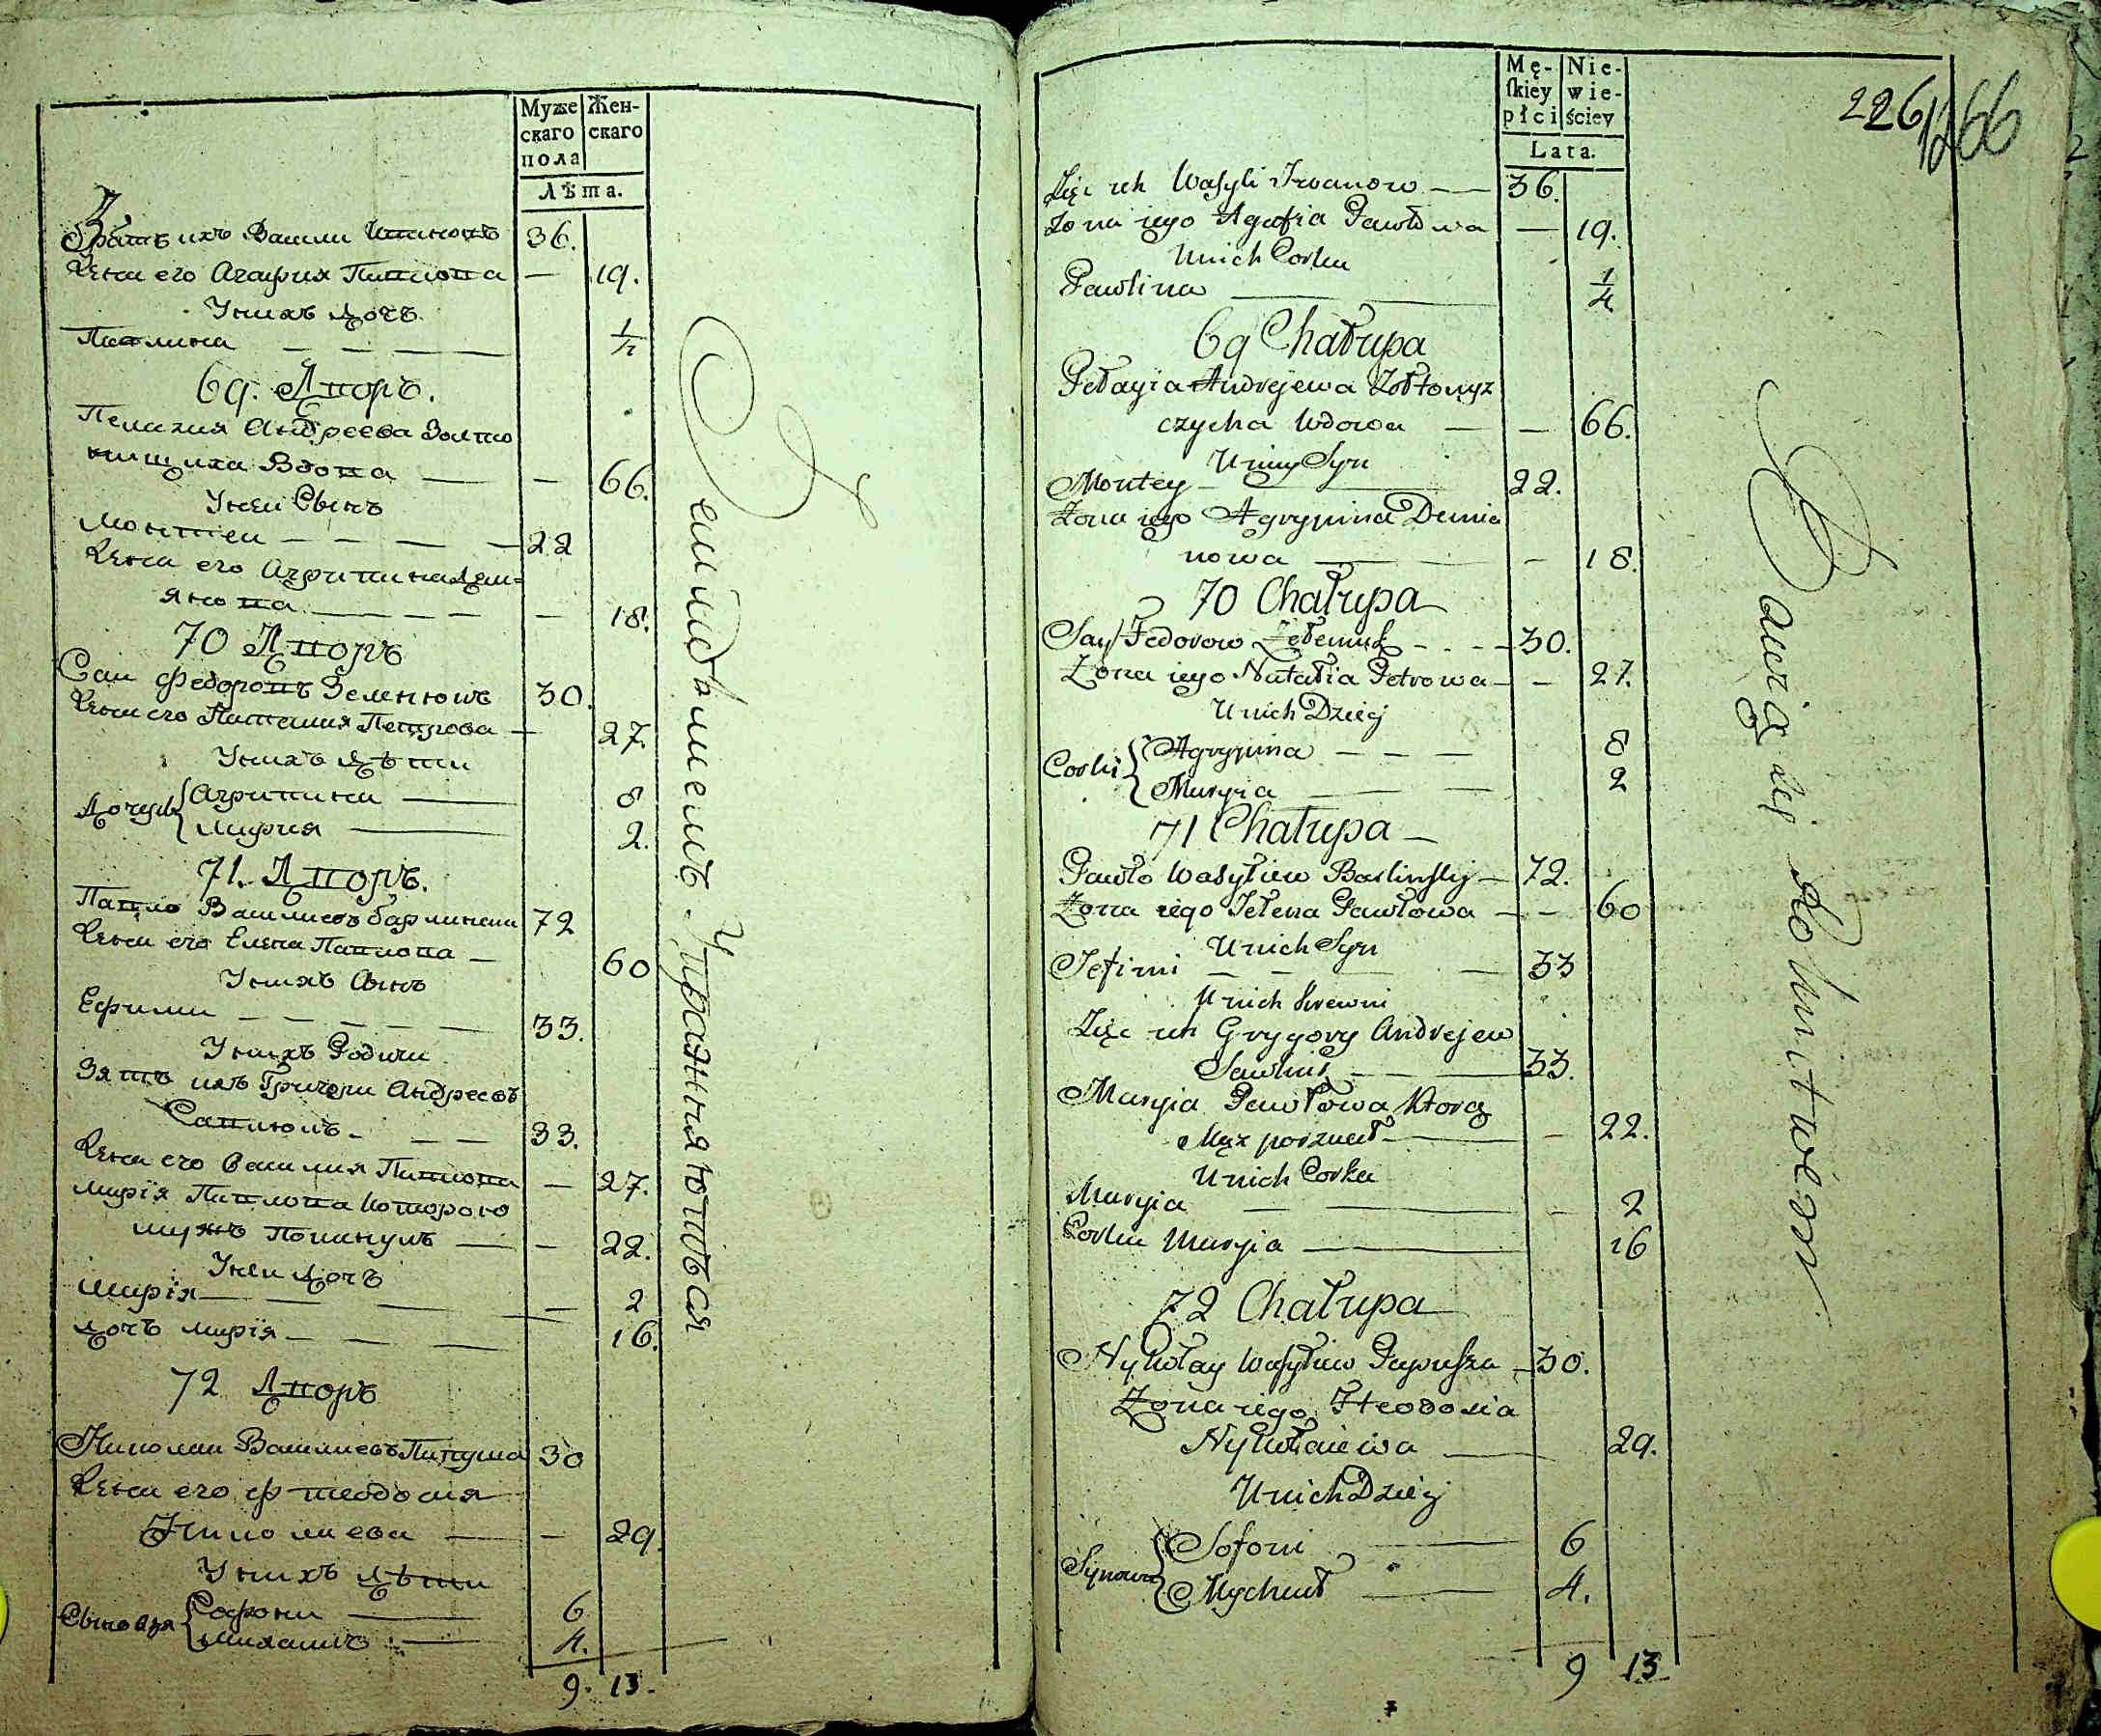 Муже
скаго
пола
Жен-
скаго
Лѣта.
Зять ихъ Васили Ивановъ — 36.
Жена его Агафия Павлова — 19.
У нихъ дочь
Павлина — — — 1/4
69. Дворъ.
Пелагия Андреева Золто
нищиха Вдова — — 66.
У неи Сынъ
Монтеи — — — — 22
Жена его Агрипина Дем-
янова — — — — 18.
70 Дворъ
Сам Федоровъ Зеленюкъ 30.
Жена его Наталия Петрова — 27.
У нихъ дѣти
Дочери { Агрипина — 8
Мария — 2.
71. Дворъ.
Павло Василиевъ Барлински 72
Жена его Елена Павлова — 60
У нихъ Сынъ
Ефими — — — — 33.
У нихъ Родичи
Зять ихъ Григори Андреевъ
Савлюкъ — — — 33.
Жена его Василия Павлова — 27.
Марія Павлова которою
мужъ Покинулъ — — 22.
У неи дочь
Марія — — — — 2
дочь Марія — — — 16.
72 Дворъ
Николаи Василиевъ Папуша 30
Жена его Фтеодосия
Николаева — — 29.
У нихъ дѣти
Сыновя { Софони — 6
Михаилъ — 4.
9. 13.
упражняютъся
226
1266
Mę-
skiey
płci
Nie-
wie-
ściey
Lata.
Zięć ich Wasyli Iwanow — 36.
Żona iego Agafia Pawłowa — 19.
U nich Corka
Pawlina — — 1/4
69 Chałupa
Pełagia Andrejewa Żołtonyż
czycha Wdowa — — 66.
U niey Syn
Montey — — 22.
Żona iego Agrypina Demia
nowa — — — 18.
70 Chałupa
Sam Fedorow Zełeniuk - - - 30.
Żona iego Natalia Petrowa — — 27.
U nich Dzieci
Corki { Agrypina — — — 8
Maryia — — 2
71 Chałupa —
Pawło Wasyliew Barlinskij — 72.
Żona iego Jełena Pawłowa — — 60
U nich Syn
Jefimi — — — 33
U nich Krewni
Zięć ich Grygory Andrejew
Sawluk — — 33.
Maryia Pawłowa Ktorą
Mąż porzucił — — 22.
U nich Corka
Maryia — — — 2
Corka Maryia — — 16
72 Chałupa
Nykołay Wasyliew Papusza — 30.
Żona iego Fteodosia
Nykołaiewa — 29.
U nich Dzieci
Synowie { Sofoni — 6
Mychał — 4.
9 13